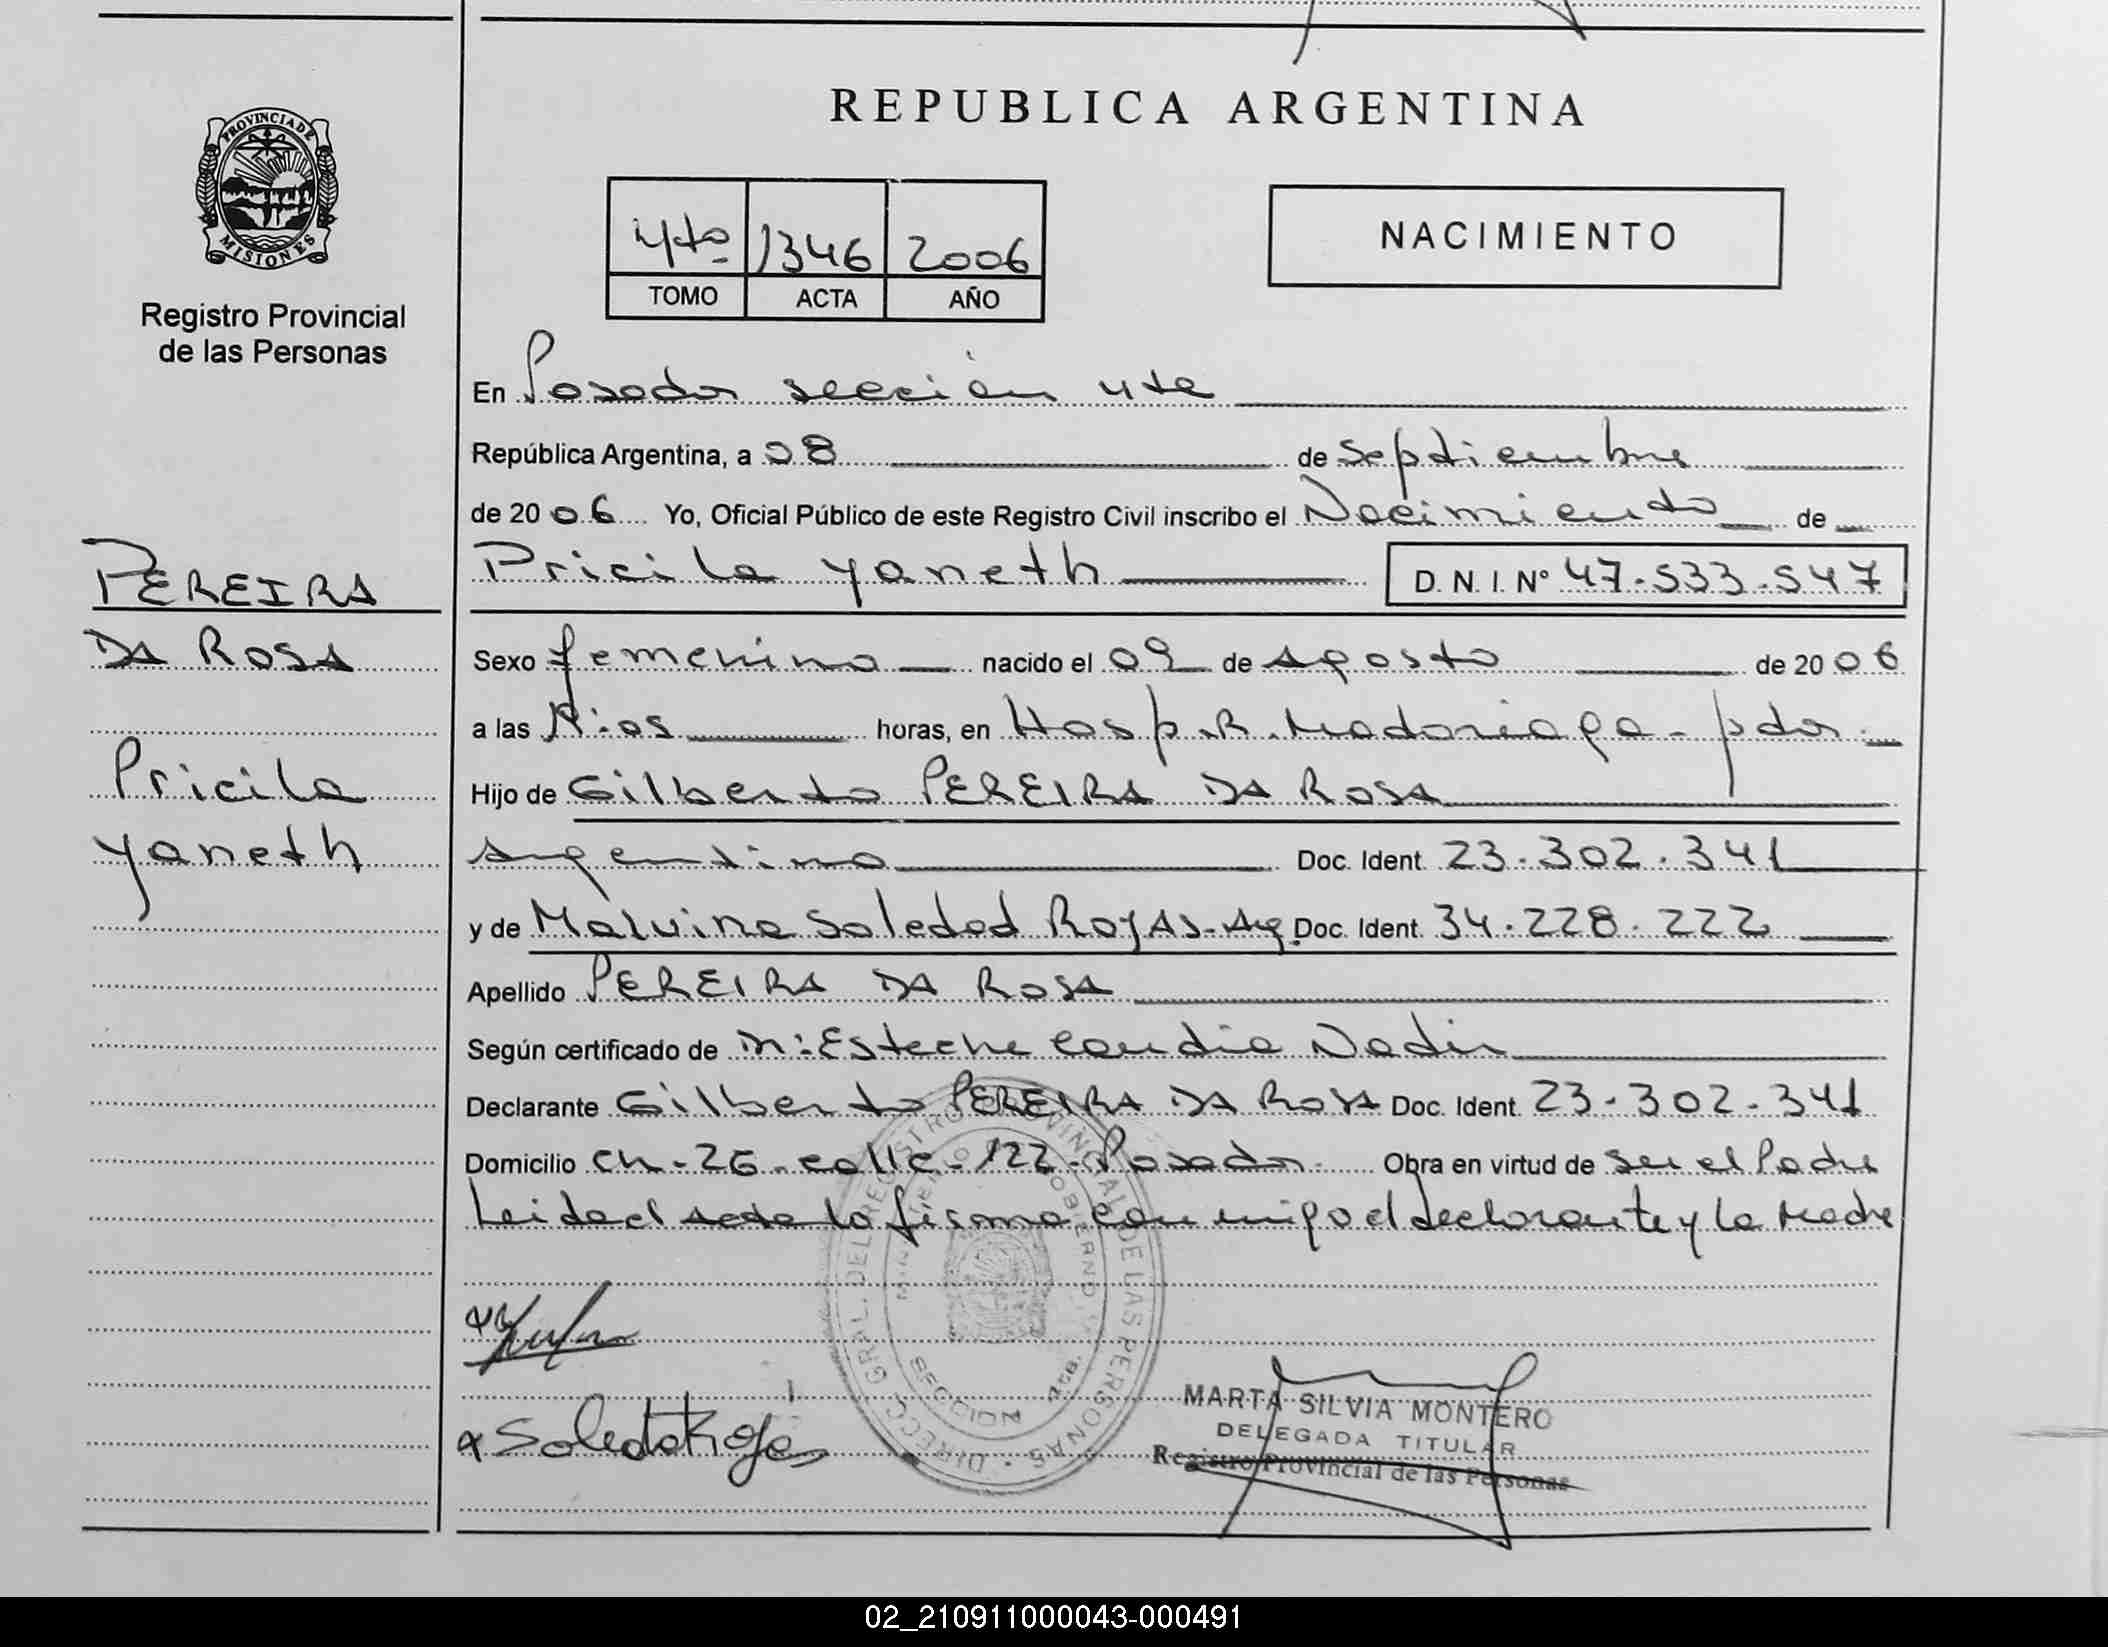 REPUBLICA ARGENTINA
PROVINCIA DE
MISIONES
Registro Provincial
de las Personas
4to 1346 2006
TOMO ACTA AÑO
NACIMIENTO
En Posadas sección 4ta
República Argentina, a 08 de septiembre
de 2006 Yo, Oficial Público de este Registro Civil inscribo el Nacimiento de
Pricila Yaneth D. N. I. N° 47.533.547
PEREIRA
DA ROSA
Pricila
Yaneth
Sexo femenino nacido el 09 de Agosto de 2006
a las horas, en Hosp. R. Madariaga - pdas.
Hijo de Gilberto PEREIRA DA ROSA
Argentino Doc. Ident. 23.302.341
y de Malvina Soledad ROJAS - Arg. Doc. Ident. 34.228.222
Apellido PEREIRA DA ROSA
Según certificado de Esteche Claudia Nadir
Declarante Gilberto PEREIRA DA ROSA Doc. Ident. 23.302.341
Domicilio ch - 26 - calle - 122 - Posadas. Obra en virtud de ser el Padre
Leida el acta la firma conmigo el declarante y la Madre
DIRECC. GRAL. DEL REGISTRO PROVINCIAL DE LAS PERSONAS
MINISTERIO GOBIERNO
SECCION 4ta.
Soledad Rojas
MARTA SILVIA MONTERO
DELEGADA TITULAR
Registro Provincial de las Personas
02_210911000043-000491